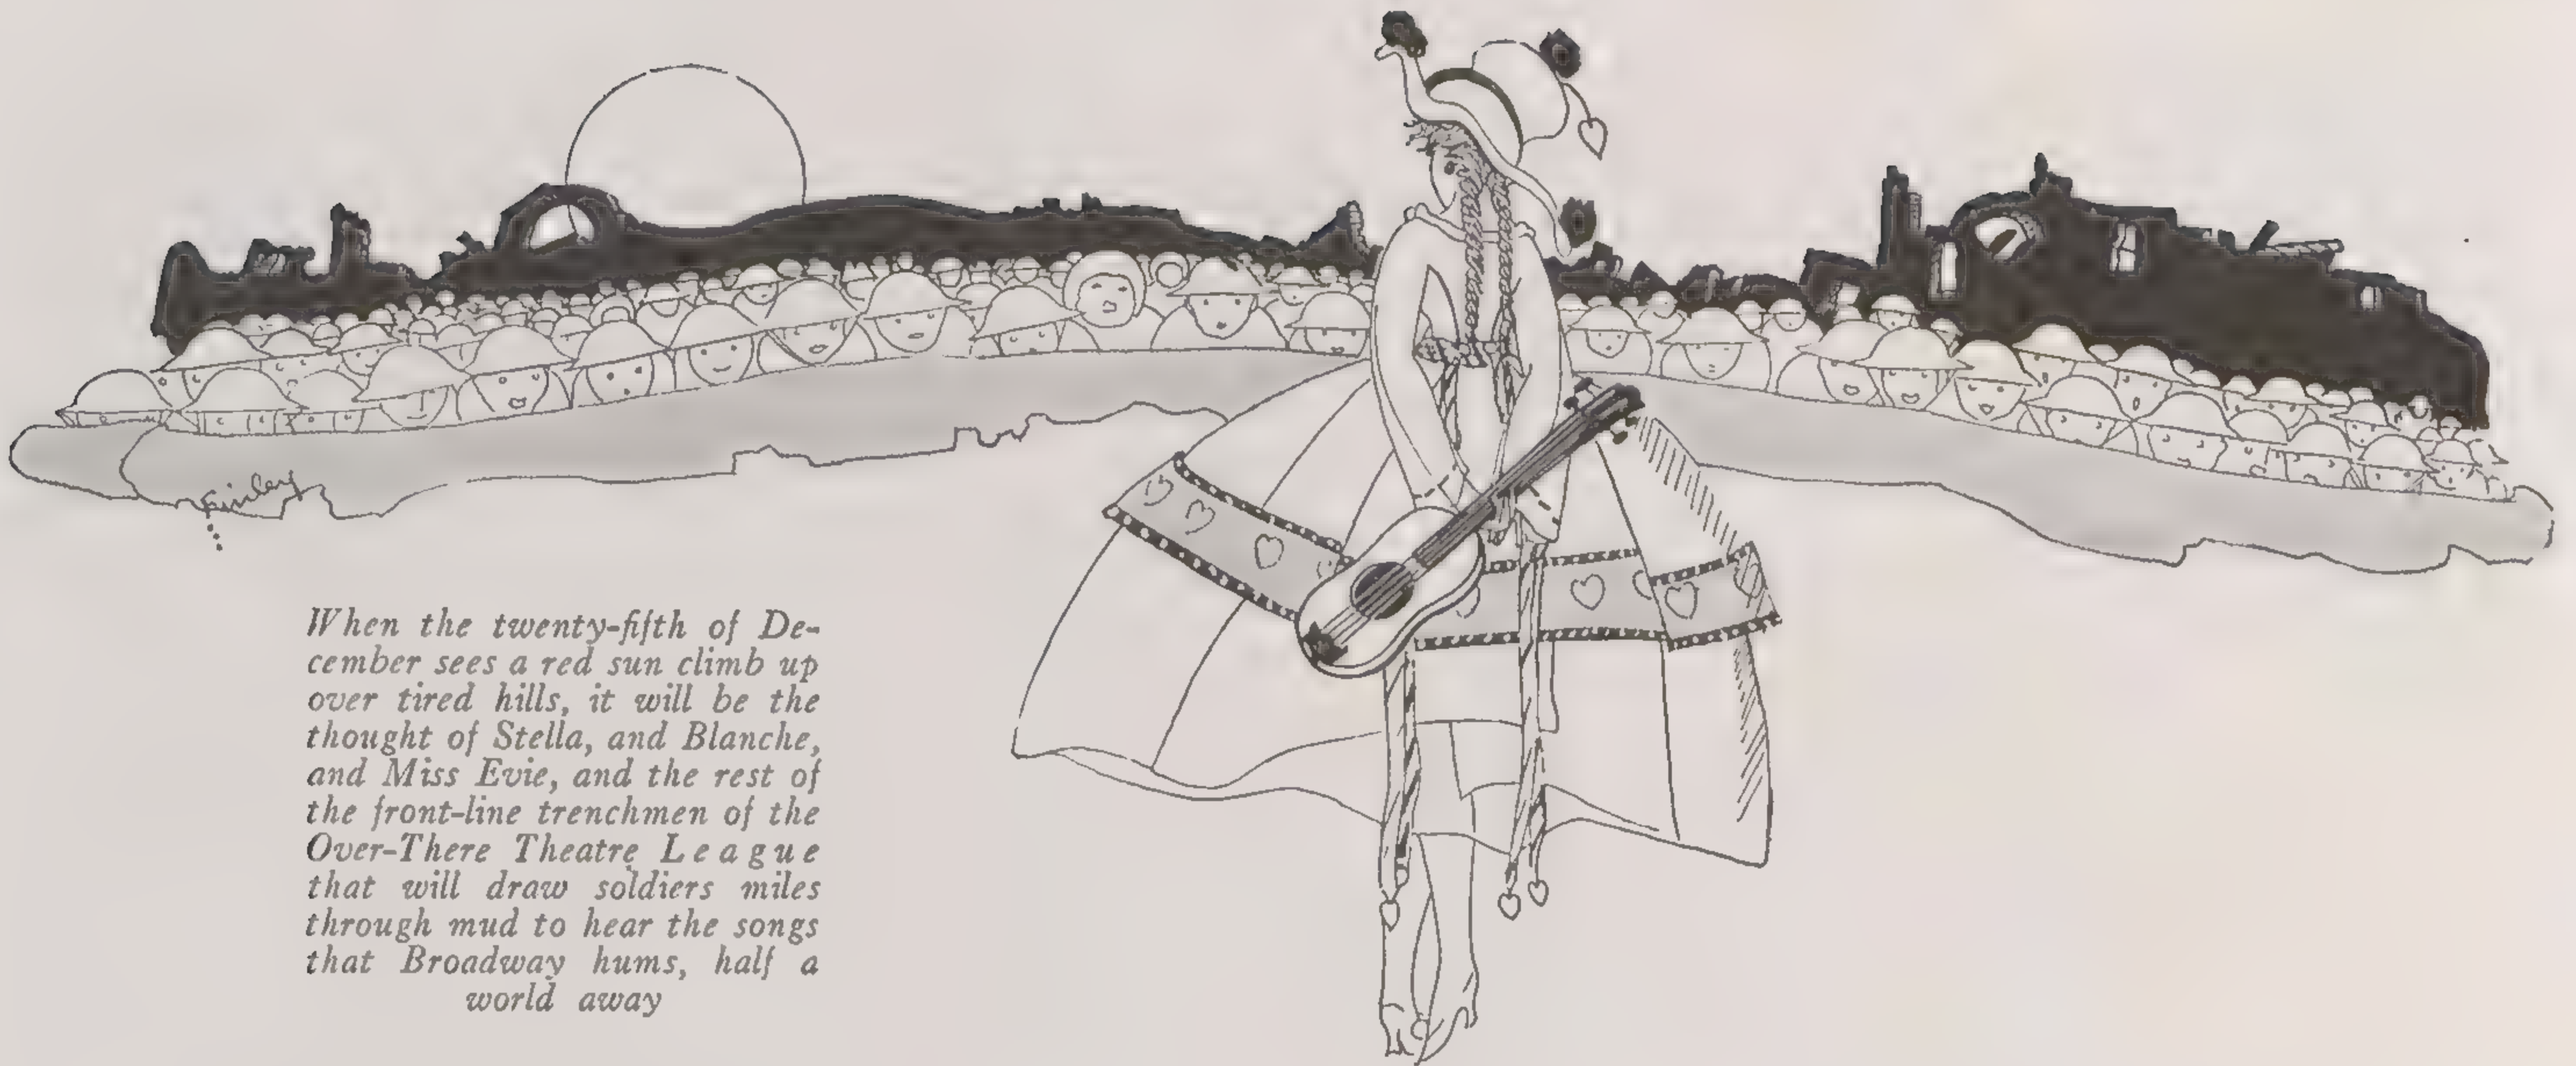 Finley
When the twenty-fifth of De-
cember sees a red sun climb up
over tired hills, it will be the
thought of Stella, and Blanche,
and Miss Evie, and the rest of
the front-line trenchmen of the
Over-There Theatre League
that will draw soldiers miles
through mud to hear the songs
that Broadway hums, half a
world away